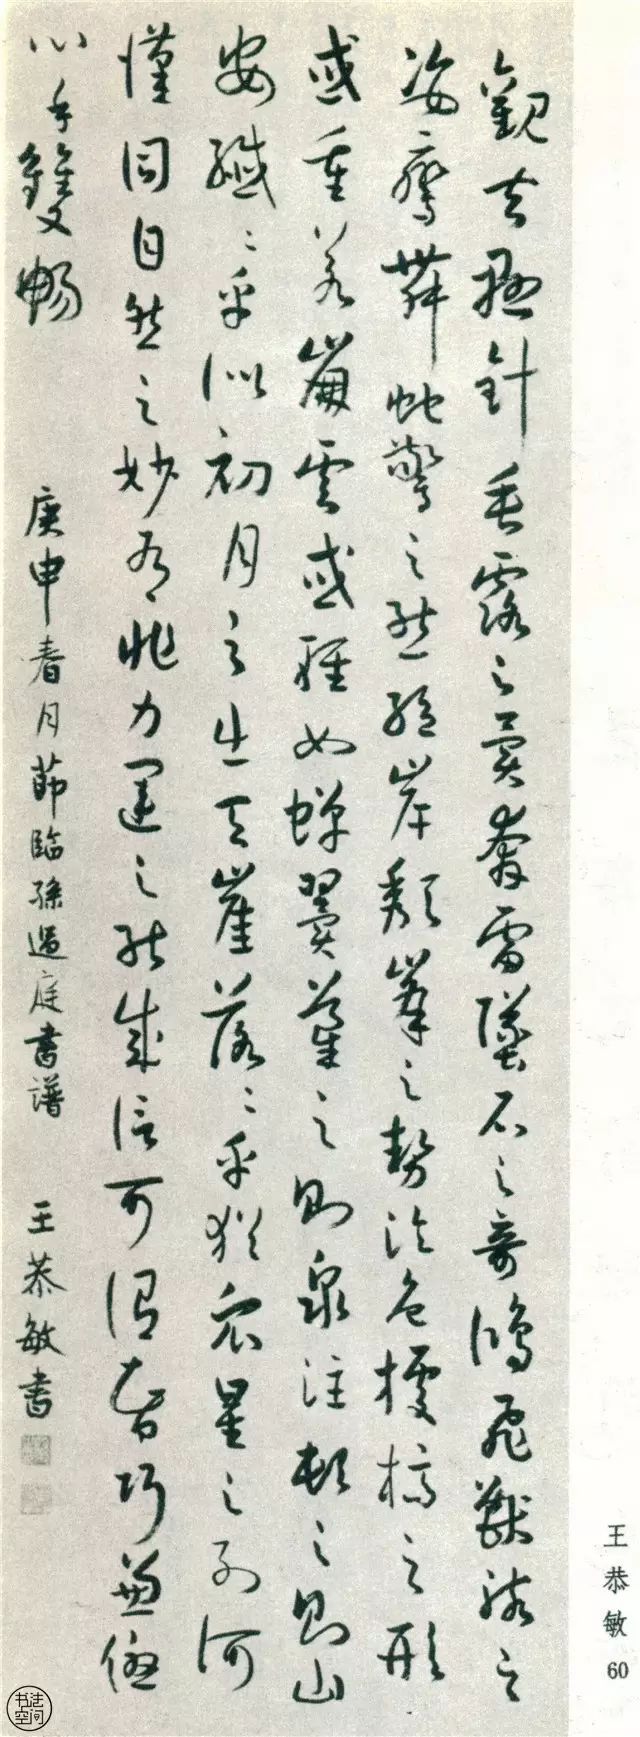 觀夫懸針垂露之異奔雷墜石之奇鴻飛獸駭之
姿鸞舞蛇驚之態絕岸頹峯之勢臨危據槁之形
或重若崩雲或輕如蟬翼導之則泉注頓之則山
安纖〻乎似初月之出天崖落〻乎猶衆星之列河
漢同自然之妙有非力運之能成信可謂智巧兼優
心手雙暢
庚申春月節臨孫過庭書譜
王恭敏書
王恭敏
60
书法空间